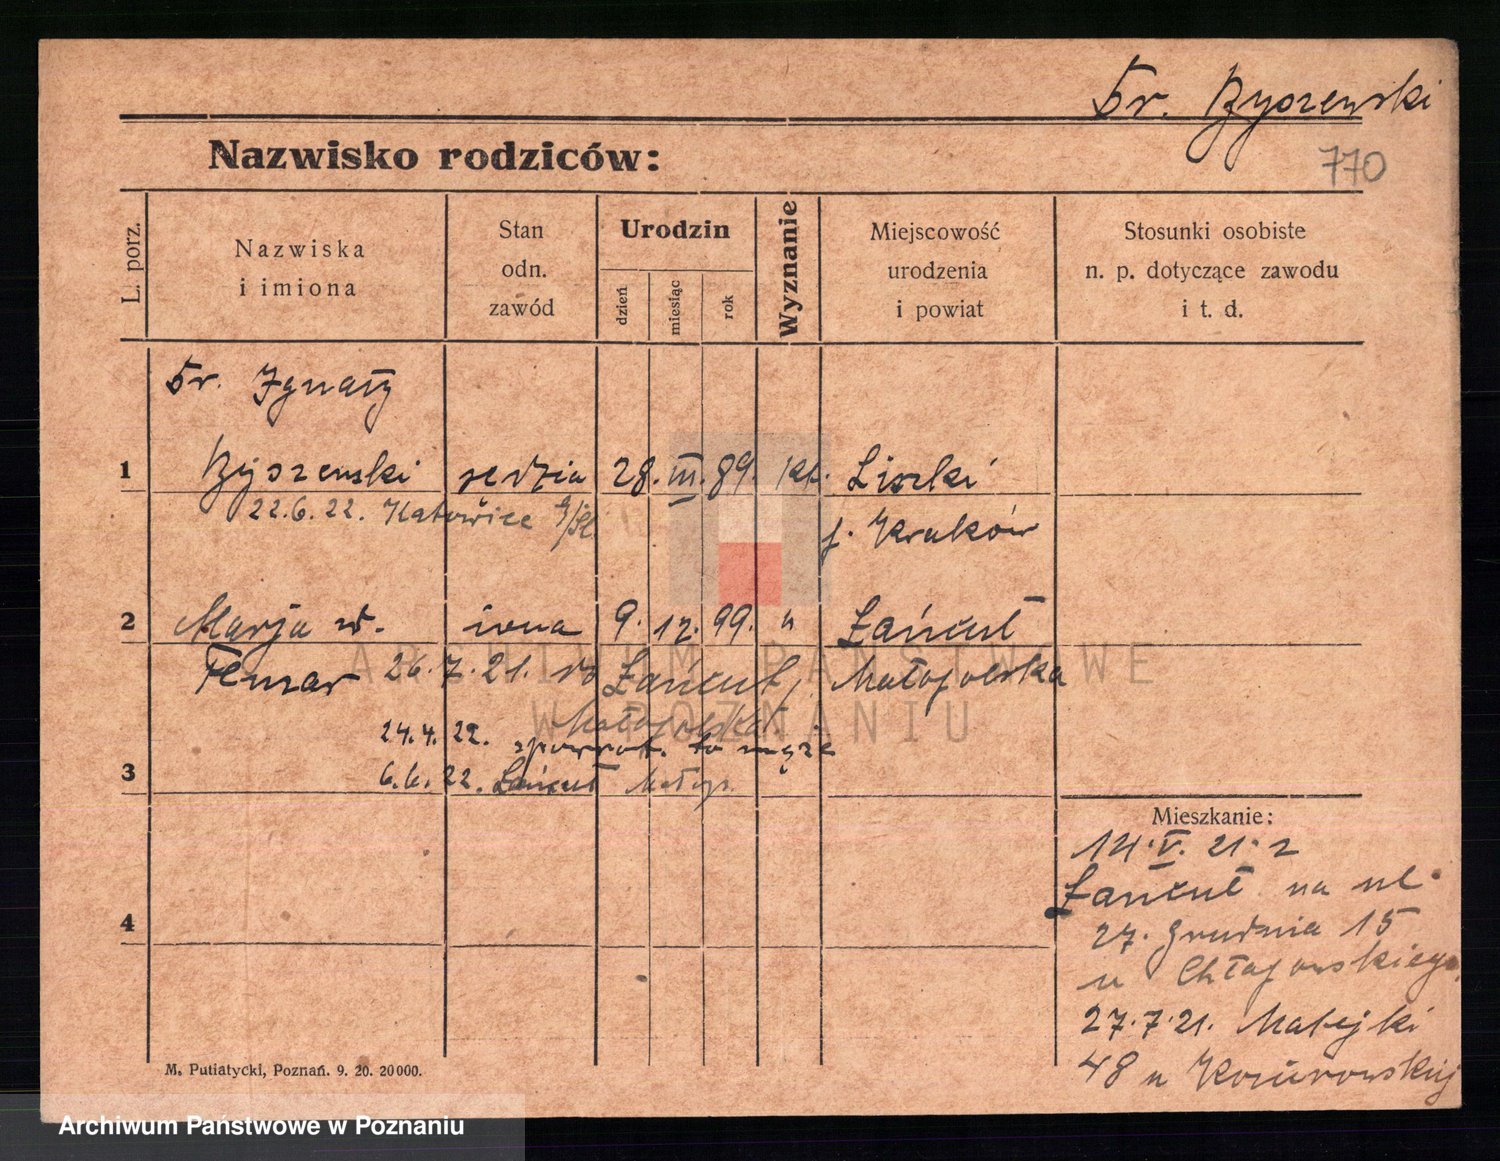 Dr. Byszewski
770
Nazwisko rodziców:
L. porz.
Nazwiska
i imiona
Stan
odn.
zawód
Urodzin
dzień
miesiąc
rok
Wyznanie
Miejscowość
urodzenia
i powiat
Stosunki osobiste
n. p. dotyczące zawodu
i t. d.
Dr. Ignacy
1 Byszewski sędzia 28. III. 89. kt. Liszki
22.6.22. Katowice G/Śl. p. Kraków
2 Marja w. żona 9. 12. 99. " Łańcut
Flenzar 26.7.21. do Łańcut, Małopolska
Małopolska
24.4.22. zpowrot. do męża
3 6.6.22. Łańcut Małop.
4
Mieszkanie:
14.V.21. z
Łańcut na ul.
27. Grudnia 15
u Chłapowskiego
27.7.21. Matejki
48 u
M. Putiatycki, Poznań. 9. 20. 20000.
ARCHIWUM PAŃSTWOWE
W POZNANIU
Archiwum Państwowe w Poznaniu